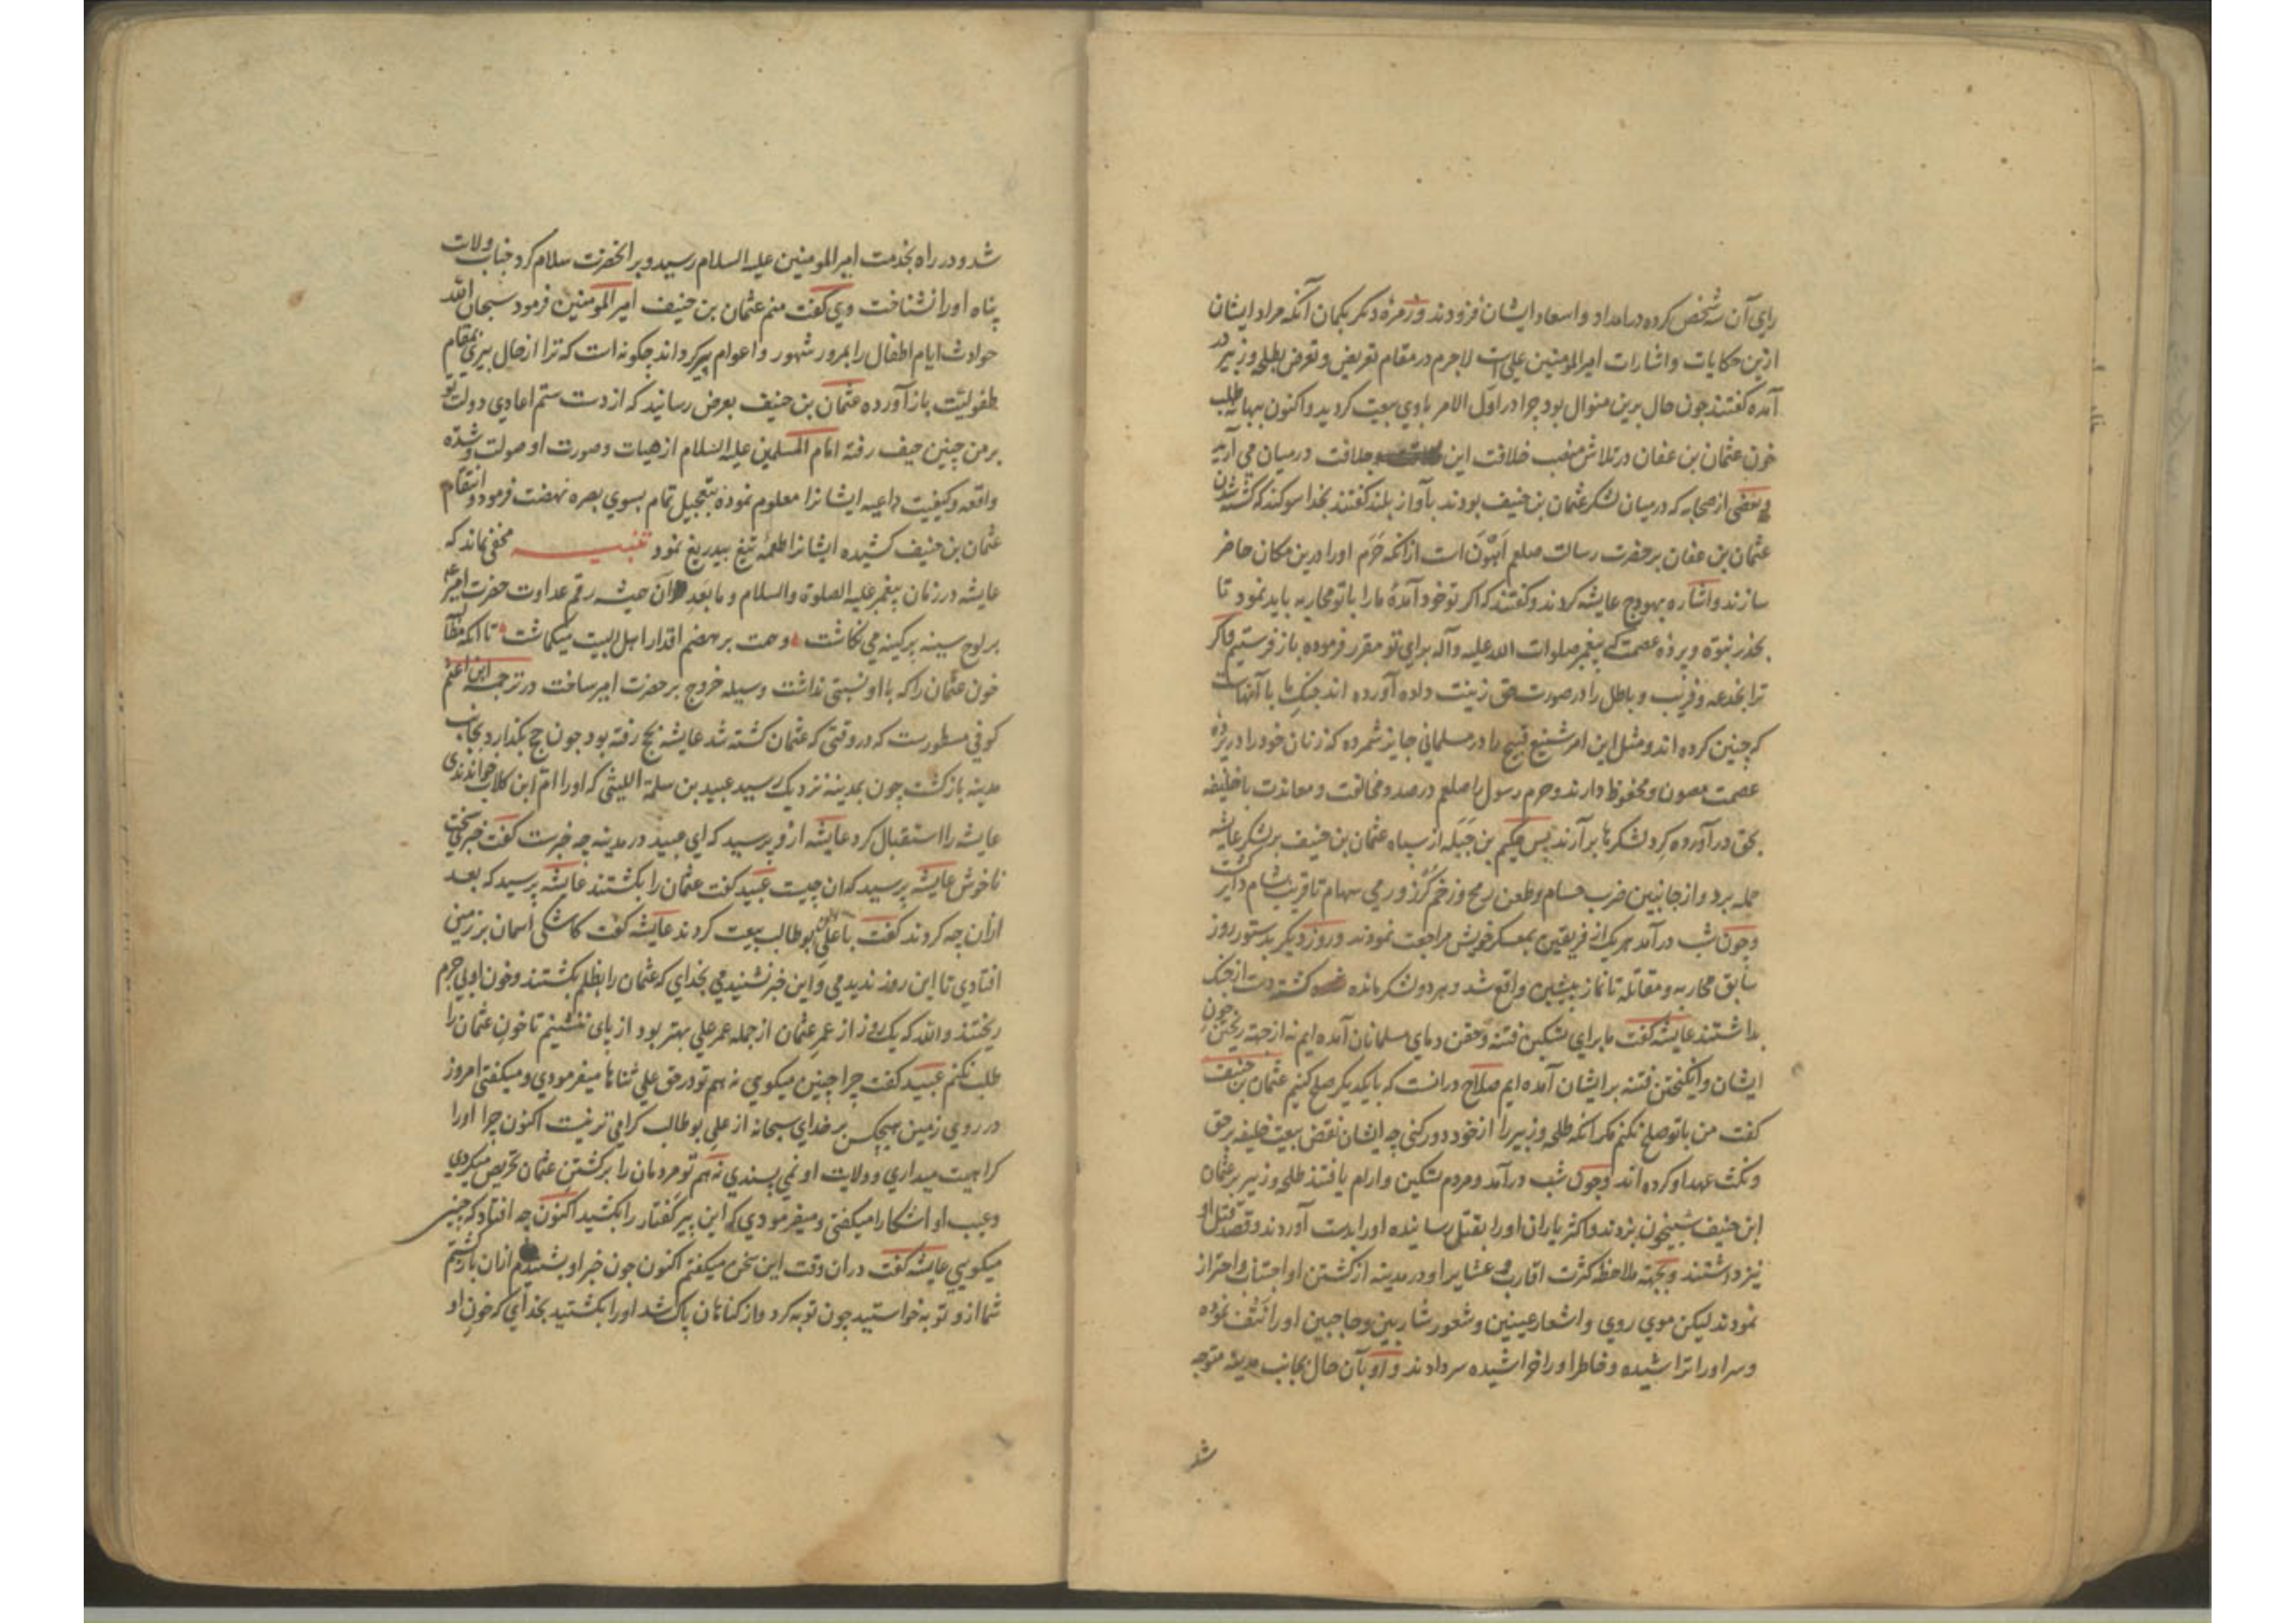 رای آن سه شخص کرده در امداد و اسعاد ایشان فزودند و زمرهٔ دیکر بکمان آنکه مراد ایشان
ازین حکایات و اشارات امیرالمومنین علی است لاجرم در مقام تعریض و تعرض بطلحه و زبیر در
آمده کفتند چون حال برین منوال بود چرا در اول الامر با وی بیعت کردید و اکنون ببهانهٔ طلب
خون عثمان بن عفان در تلاش منصب خلافت این خلافت در میان می آرید
و بعضی از صحابه که در میان لشکر عثمان بن حنیف بودند بآواز بلند کفتند بخدا سوکند که کشته شدن
عثمان بن عفان بر حضرت رسالت صلعم اهون است از انکه حرم او را درین مکان حاضر
سازند و اشاره بهودج عایشه کردند و کفتند که اکر تو خود آمدهٔ ما را با تو محاربه باید نمود تا
بخدر نبوة و پردهٔ عصمت که پیغمبر صلوات الله علیه و آله برای تو مقرر فرموده باز فرستیم و اکر
ترا بخدعه و فریب و باطل را در صورت حق زینت داده آورده اند جنک ما با آنهاست
که چنین کرده اند و مثل این امر شنیع قبیح را در مسلمانی جایز شمرده که زنان خود را در پردهٔ
عصمت مصون و محفوظ دارند و حرم رسول را صلعم در صدد مخالفت و معاندت با خلیفه
بحق در آورده کرد لشکرها بر آرند پس حکیم بن جبله از سپاه عثمان بن حنیف بر لشکر عایشه
حمله برد و از جانبین ضرب حسام و طعن رمح و زخم کرز و رمی سهام تا قریب شام دایر کشت
و چون شب در آمد هر یک از فریقین بمعسکر خویش مراجعت نمودند و روز دیکر بدستور روز
سابق محاربه و مقاتله تا نماز پیشین واقع شد و هر دو لشکر مانده شده کشته دست از جنک
بداشتند عایشه کفت ما برای تسکین فتنه و حقن دمای مسلمانان آمده ایم نه از جهة ریختن خون
ایشان و انکیختن فتنه برایشان آمده ایم صلاح در انست که با یکدیکر صلح کنیم عثمان بن حنیف
کفت من با تو صلح نکنم مکر آنکه طلحه و زبیر را از خود دور کنی چه ایشان نقض بیعت خلیفه بر حق
و نکث عهد او کرده اند و چون شب در آمد و مردم تسکین و ارام یافتند طلحه و زبیر بر عثمان
ابن حنیف شبیخون بزدند و اکثر یاران او را بقتل رسانیده او را بدست آوردند و قصد قتل او
نیز داشتند و بجهة ملاحظه کثرت اقارب و عشایر او در مدینه از کشتن او اجتناب و احتراز
نمودند لیکن موی روی و اشعار عینین و شعور شاربین و حاجبین او را نتف نموده
و سر او را تراشیده و خاطر او را خراشیده سر دادند و او بآن حال بجانب مدینه متوجه
شد
شد و در راه بخدمت امیرالمومنین علیه السلام رسید و بر انحضرت سلام کرد جناب ولایت
پناه او را نشناخت وی کفت منم عثمان بن حنیف امیرالمومنین فرمود سبحان الله
حوادث ایام اطفال را بمرور شهور و اعوام پیر کرداند چکونه است که ترا از حال پیری بمقام
طفولیت باز آورده عثمان بن حنیف بعرض رسانید که از دست ستم اعادی دولت تو
بر من چنین حیف رفته امام المسلمین علیه السلام از هیات و صورت او صولت و شدة
واقعه و کیفیت داعیه ایشانرا معلوم نموده بتعجیل تمام بسوی بصره نهضت فرمود و انتقام
عثمان بن حنیف کشیده ایشانرا طعمهٔ تیغ بیدریغ نمود تنبیه مخفی نماند که
عایشه در زمان پیغمبر علیه الصلوة والسلام و ما بعد آن همیشه رقم عداوت حضرت امیر
بر لوح سینه پرکینه می نکاشت و همت بر هضم اقدار اهل البیت میکماشت تا آنکه مظالم
خون عثمان را که با او نسبتی نداشت وسیله خروج بر حضرت امیر ساخت در ترجمه ابن اعثم
کوفی مسطورست که در وقتی که عثمان کشته شد عایشه بحج رفته بود چون حج بکذارد و بجانب
مدینه بازکشت چون بمدینه نزدیک رسید عبید بن سلمة اللیثی که او را ام ابن کلاب خواندندی
عایشه را استقبال کرد عایشه از و پرسید که ای عبید در مدینه چه خبرست کفت خبری سخت
ناخوش عایشه پرسید که ان چیست عبید کفت عثمان را بکشتند عایشه پرسید که بعد
ازان چه کردند کفت با علی بن ابو طالب بیعت کردند عایشه کفت کاشکی اسمان بر زمین
افتادی تا این روز ندیدمی و این خبر نشنیدمی بخدای که عثمان را بظلم بکشتند و خون او بی جرم
ریختند والله که یک روز از عمر عثمان از جمله عمر علی بهتر بود از پای ننشینم تا خون عثمان را
طلب نکنم عبید کفت چرا چنین میکویی نه هم تو در حق علی ثناها میفرمودی و میکفتی امروز
در روی زمین هیچکس بر خدای سبحانه از علی بو طالب کرامی تر نیست اکنون چرا او را
کراهیت میداری و ولایت او نمی پسندی نه هم تو مردمان را بر کشتن عثمان تحریص میکردی
و عیب او اشکارا میکفتی و میفرمودی که این پیر کفتار را بکشید اکنون چه افتاد که چنین
میکویی عایشه کفت دران وقت این سخن میکفتم اکنون چون خبر او بشنیدم ازان بازکشتم
شما از و توبه خواستید چون توبه کرد و از کناهان پاک شد او را بکشتید بخدای که خون او